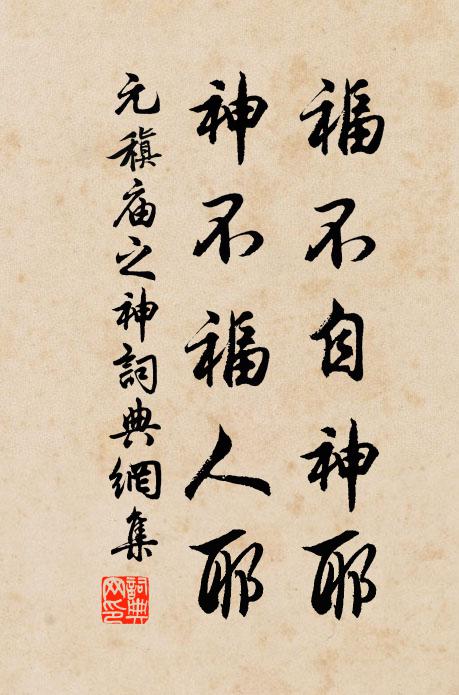 福不自神耶
神不福人耶
元稹庙之神詞典網集
詞典网印